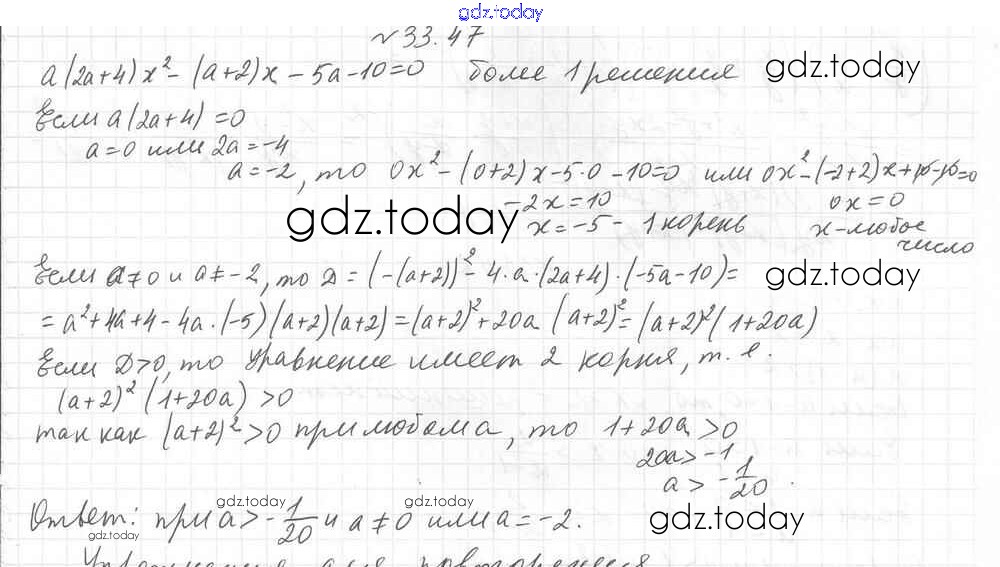 gdz.today
№ 33.47
a(2a+4)x² - (a+2)x - 5a - 10 = 0 более 1 решения gdz.today
Если a(2a+4) = 0
a = 0 или 2a = -4
a = -2, то 0x² - (0+2)x - 5·0 - 10 = 0 или 0x² - (-2+2)x + 10 - 10 = 0
-2x = 10 0x = 0
gdz.today x = -5 - 1 корень x - любое
число
Если a ≠ 0 и a ≠ -2, то D = (-(a+2))² - 4·a·(2a+4)·(-5a-10) = gdz.today
= a² + 4a + 4 - 4a·(-5)(a+2)(a+2) = (a+2)² + 20a (a+2)² = (a+2)²(1+20a)
Если D>0, то уравнение имеет 2 корня, т. е.
(a+2)² (1+20a) > 0
так как (a+2)² > 0 при любом a, то 1+20a > 0
20a > -1
a > -1/20.
gdz.today gdz.today
Ответ: при a > -1/20 и a ≠ 0 или a = -2. gdz.today